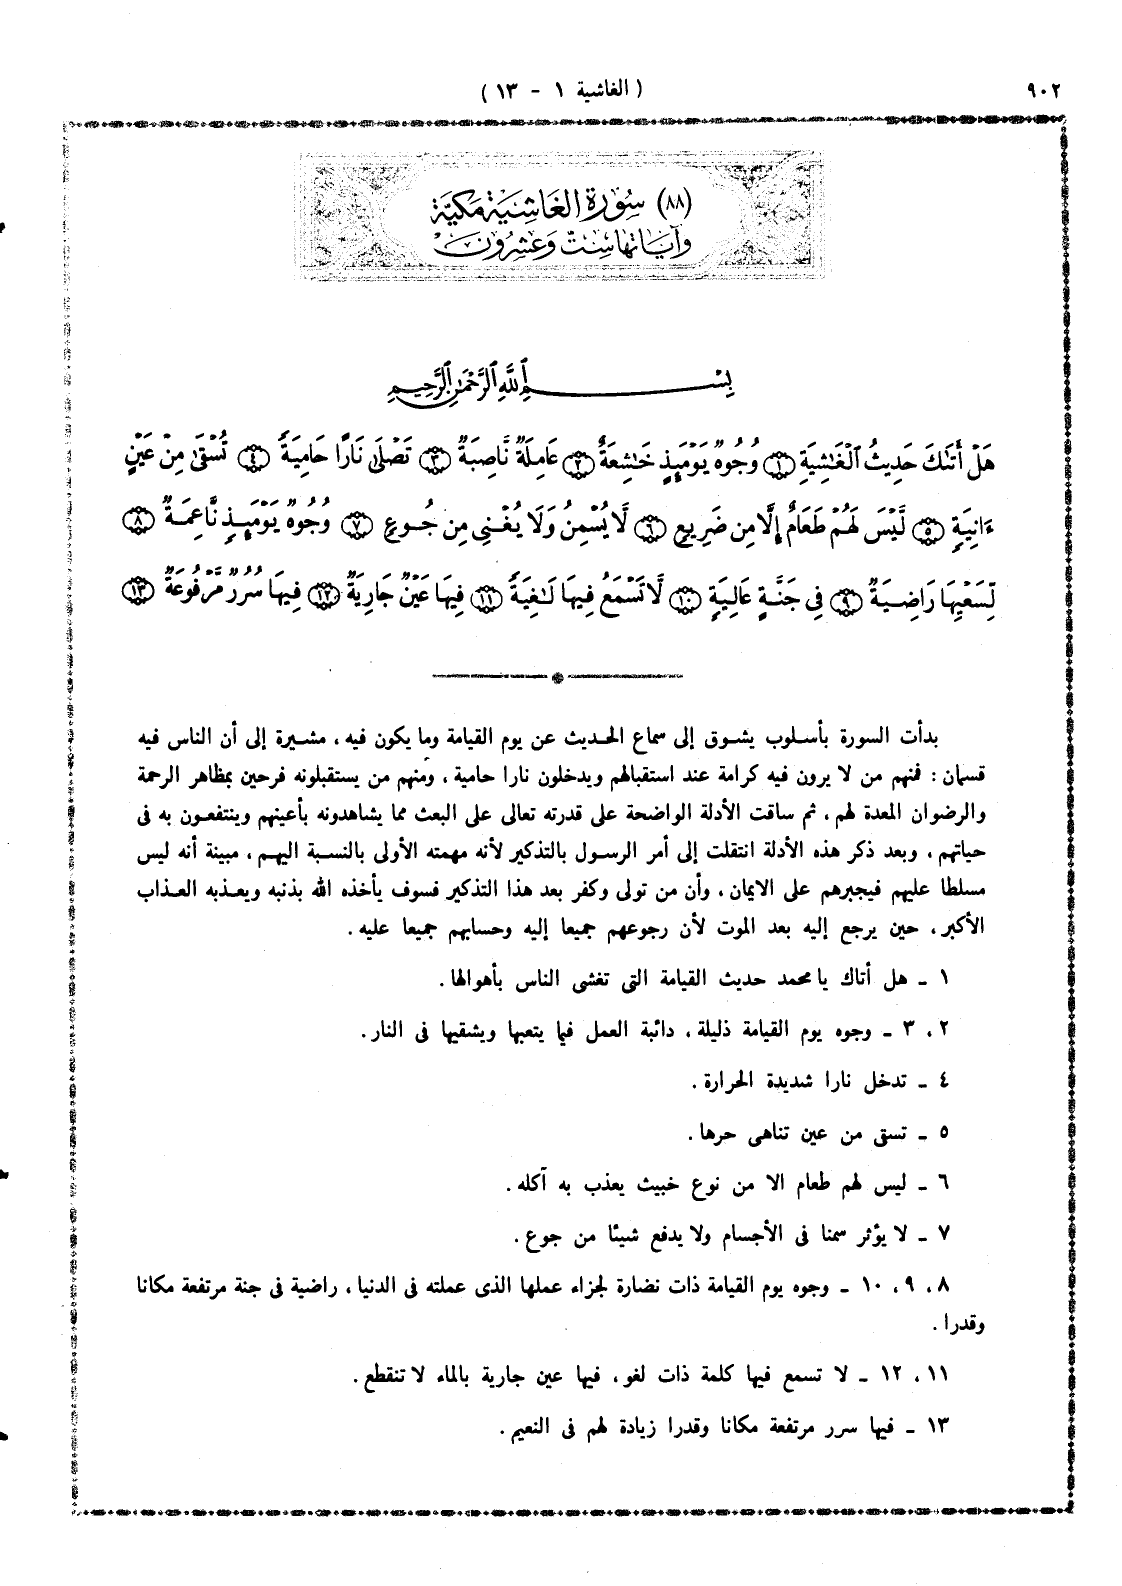 ٩٠٢
( الغاشية ١ - ١٣ )
(٨٨) سُورَة الغَاشِيَة مَكيَّة
وَآيَاتهَا سِتٌّ وَعِشْرُونَ
بِسْمِ ٱللَّهِ ٱلرَّحْمَٰنِ ٱلرَّحِيمِ
هَلْ أَتَىٰكَ حَدِيثُ ٱلْغَٰشِيَةِ ١ وُجُوهٌ يَوْمَئِذٍ خَٰشِعَةٌ ٢ عَامِلَةٌ نَّاصِبَةٌ ٣ تَصْلَىٰ نَارًا حَامِيَةً ٤ تُسْقَىٰ مِنْ عَيْنٍ
ءَانِيَةٍ ٥ لَّيْسَ لَهُمْ طَعَامٌ إِلَّا مِن ضَرِيعٍ ٦ لَّا يُسْمِنُ وَلَا يُغْنِى مِن جُوعٍ ٧ وُجُوهٌ يَوْمَئِذٍ نَّاعِمَةٌ ٨
لِّسَعْيِهَا رَاضِيَةٌ ٩ فِى جَنَّةٍ عَالِيَةٍ ١٠ لَّا تَسْمَعُ فِيهَا لَٰغِيَةً ١١ فِيهَا عَيْنٌ جَارِيَةٌ ١٢ فِيهَا سُرُرٌ مَّرْفُوعَةٌ ١٣
بدأت السورة بأسلوب يشوق إلى سماع الحديث عن يوم القيامة وما يكون فيه ، مشيرة إلى أن الناس فيه
قسمان : فمنهم من لا يرون فيه كرامة عند استقبالهم ويدخلون نارا حامية ، ومنهم من يستقبلونه فرحين بمظاهر الرحمة
والرضوان المعدة لهم ، ثم ساقت الأدلة الواضحة على قدرته تعالى على البعث مما يشاهدونه بأعينهم وينتفعون به فى
حياتهم ، وبعد ذكر هذه الأدلة انتقلت إلى أمر الرسول بالتذكير لأنه مهمته الأولى بالنسبة اليهم ، مبينة أنه ليس
مسلطا عليهم فيجبرهم على الايمان ، وأن من تولى وكفر بعد هذا التذكير فسوف يأخذه الله بذنبه ويعذبه العذاب
الأكبر ، حين يرجع إليه بعد الموت لأن رجوعهم جميعا إليه وحسابهم جميعا عليه .
١ ـ هل أتاك يا محمد حديث القيامة التى تغشى الناس بأهوالها .
٢ ، ٣ ـ وجوه يوم القيامة ذليلة ، دائبة العمل فيما يتعبها ويشقيها فى النار .
٤ ـ تدخل نارا شديدة الحرارة .
٥ ـ تسقى من عين تناهى حرها .
٦ ـ ليس لهم طعام الا من نوع خبيث يعذب به آكله .
٧ ـ لا يؤثر سمنا فى الأجسام ولا يدفع شيئا من جوع .
٨ ، ٩ ، ١٠ ـ وجوه يوم القيامة ذات نضارة لجزاء عملها الذى عملته فى الدنيا ، راضية فى جنة مرتفعة مكانا
وقدرا .
١١ ، ١٢ ـ لا تسمع فيها كلمة ذات لغو ، فيها عين جارية بالماء لا تنقطع .
١٣ ـ فيها سرر مرتفعة مكانا وقدرا زيادة لهم فى النعيم .